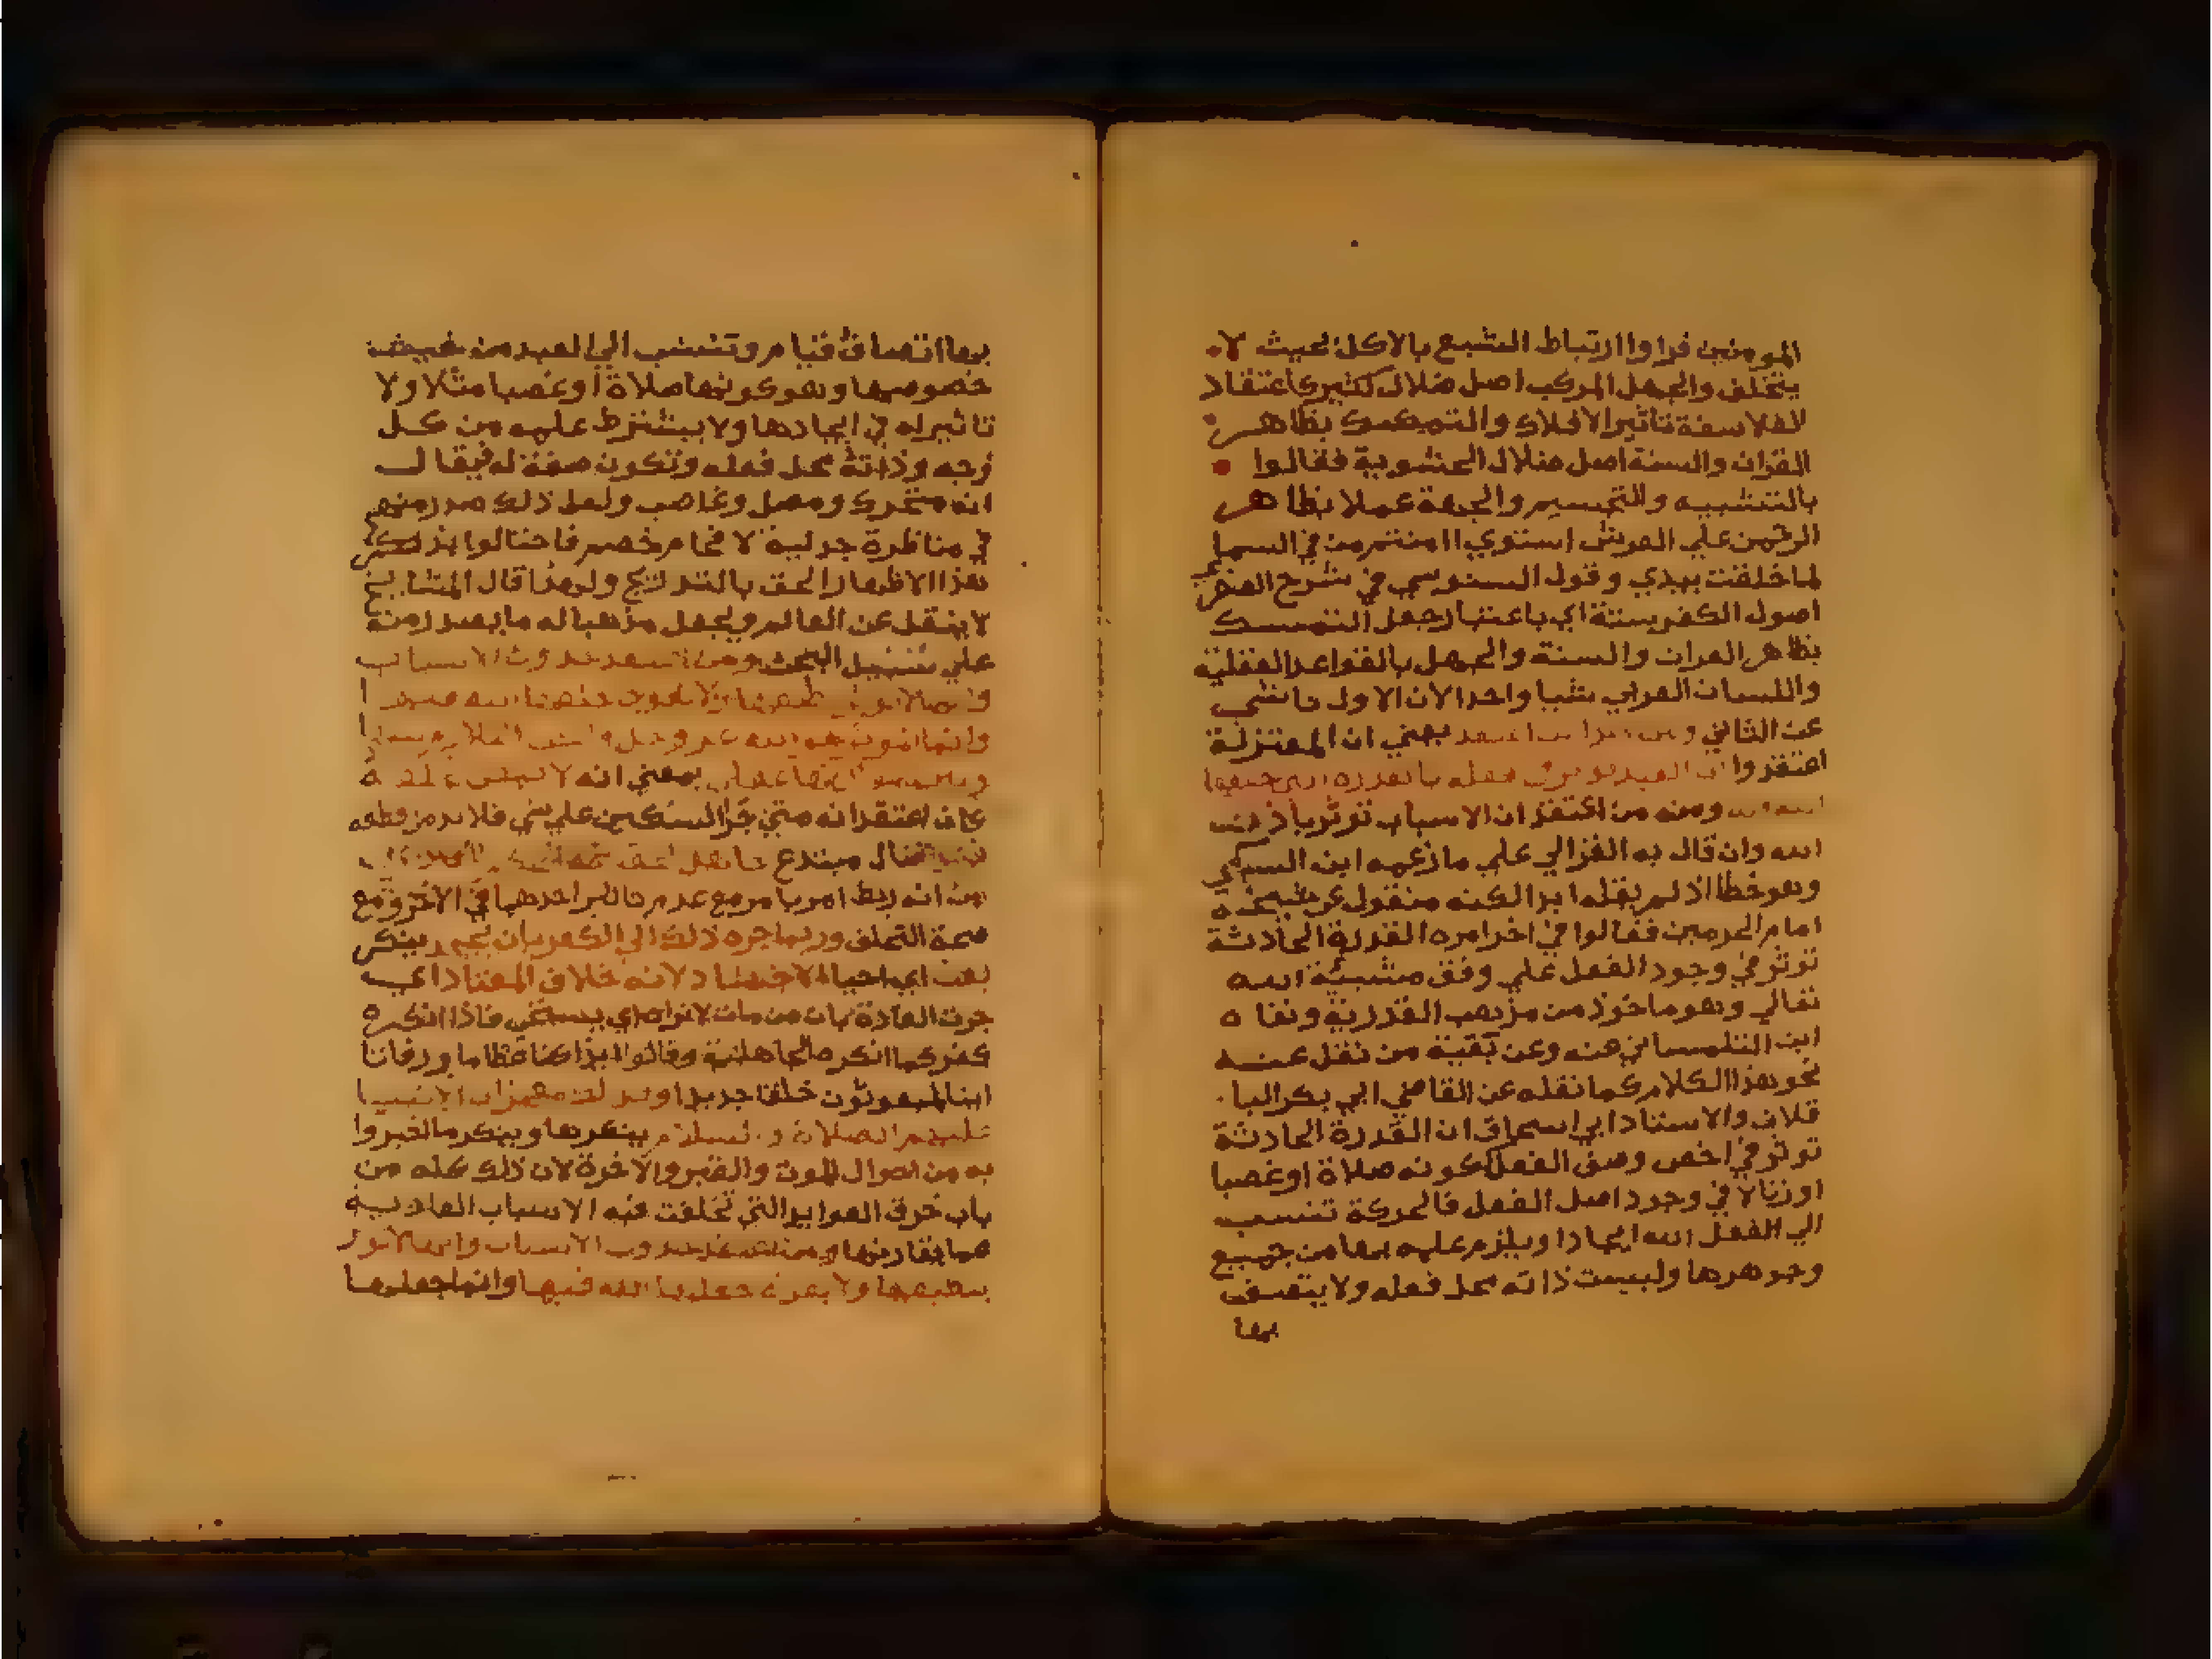 المومنين فراوا ارتباط الشبع بالاكل بحيث لا
يتخلف والجهل المركب اصل ضلال كثيري اعتقاد
الفلاسفة تاثير الافلاك والتمسك بظاهر
القران والسنة اصل ضلال الحشوية فقالوا
بالتشبيه والتجسيم والجهة عملا بظاهر
الرحمن علي العرش استوي اامنتم من في السما
لما خلقت بيدي وقول السنوسي في شرح
اصول الكفر ستة اي باعتبار جعل التمسك
بظاهر القران والسنة والجهل بالقواعد العقلية
واللسان العربي شيا واحدا لان الاول ناشي
عن الثاني يعني ان المعتزلة
اعتقدوا ان العبد فعله بالقدرة
ومنه من اعتقد ان الاسباب توثر باذن
الله وان قال به الغزالي علي ما زعمه ابن السبكي
وهو خطا اذ لم يقله ابدا لكنه منقول عن شيخه
امام الحرمين فقالوا في اخر امره القدرة الحادثة
توثر في وجود الفعل علي وفق مشيئة الله
تعالي وهو ماخوذ من مذهب القدرية ونفاه
ابن التلمساني عنه وعن بقية من نقل عنه
نحو هذا الكلام كما نقله عن القاضي ابي بكر البا
قلاني والاستاذ ابي اسحاق ان القدرة الحادثة
توثر في اخص وصف الفعل ككونه صلاة او غصبا
او زنا لا في وجود اصل الفعل فالحركة تنسب
الي الفعل الله ايجادا ويلزم علمه بها من جميع
وجوهرها وليست ذاته محل فعله ولا يتصف
بها
بها اتصاف قيام وتنسب الي العبد من حيث
خصوصها وهو كونها صلاة او غصبا مثلا ولا
تاثير له في ايجادها ولا يشترط علمه من كل
وجه وذاته محل فعله وتكون صفة له فيقال
انه متحرك ومصل وغاصب ولعل ذلك صدر منهم
في مناظرة جدلية لافحام خصم فاحتالوا بذلك
هذا الاظهار الحق بالتدريج ولهذا قال المشايخ
لا ينقل عن العالم ويجعل مذهبا له ما يصدر منه
علي سبيل البحث ومن اعتقد حدوث الاسباب
وانما الموثر هو الله عز وجل
بمعني انه لا
بان اعتقد انه متي جر السكين علي شي فلا بد من قطعه
مبتدع جاهل
من انه ربط امر بامر مع عدم تاثير احدهما في الاخر ومع
صحة التخلف وربما جره ذلك الي الكفر بان ينكر
البعث اي احيا الاجساد لانه خلاف المعتاد اي
جرت العادة بان من مات لا نراه فاذا انكره
كفر كما انكره الجاهلية وقالوا ايذا كنا عظاما ورفاتا
اينا لمبعوثون خلقا جديدا وكذلك معجزات الانبيا
عليهم الصلاة والسلام ينكرها وينكر ما اخبروا
به من احوال الموت والقبر والاخرة لان ذلك كله من
باب خرق العوايد التي تخلفت فيه الاسباب العادية
عما يقارنها ومن اعتقد حدوث الاسباب وانها لا توثر
بطبعها ولا بقوة جعلها الله فيها وانما جعلها